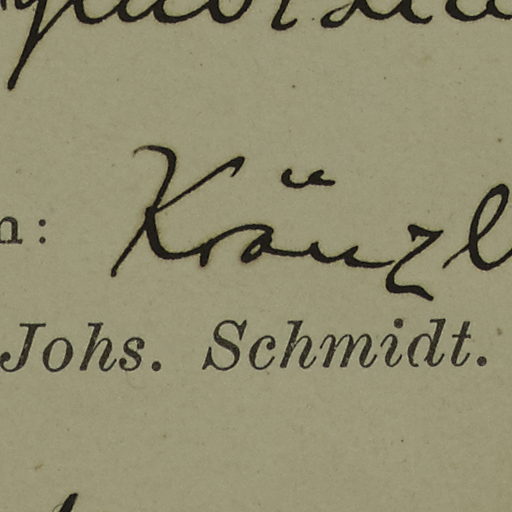 n: Kränzl
Johs. Schmidt.